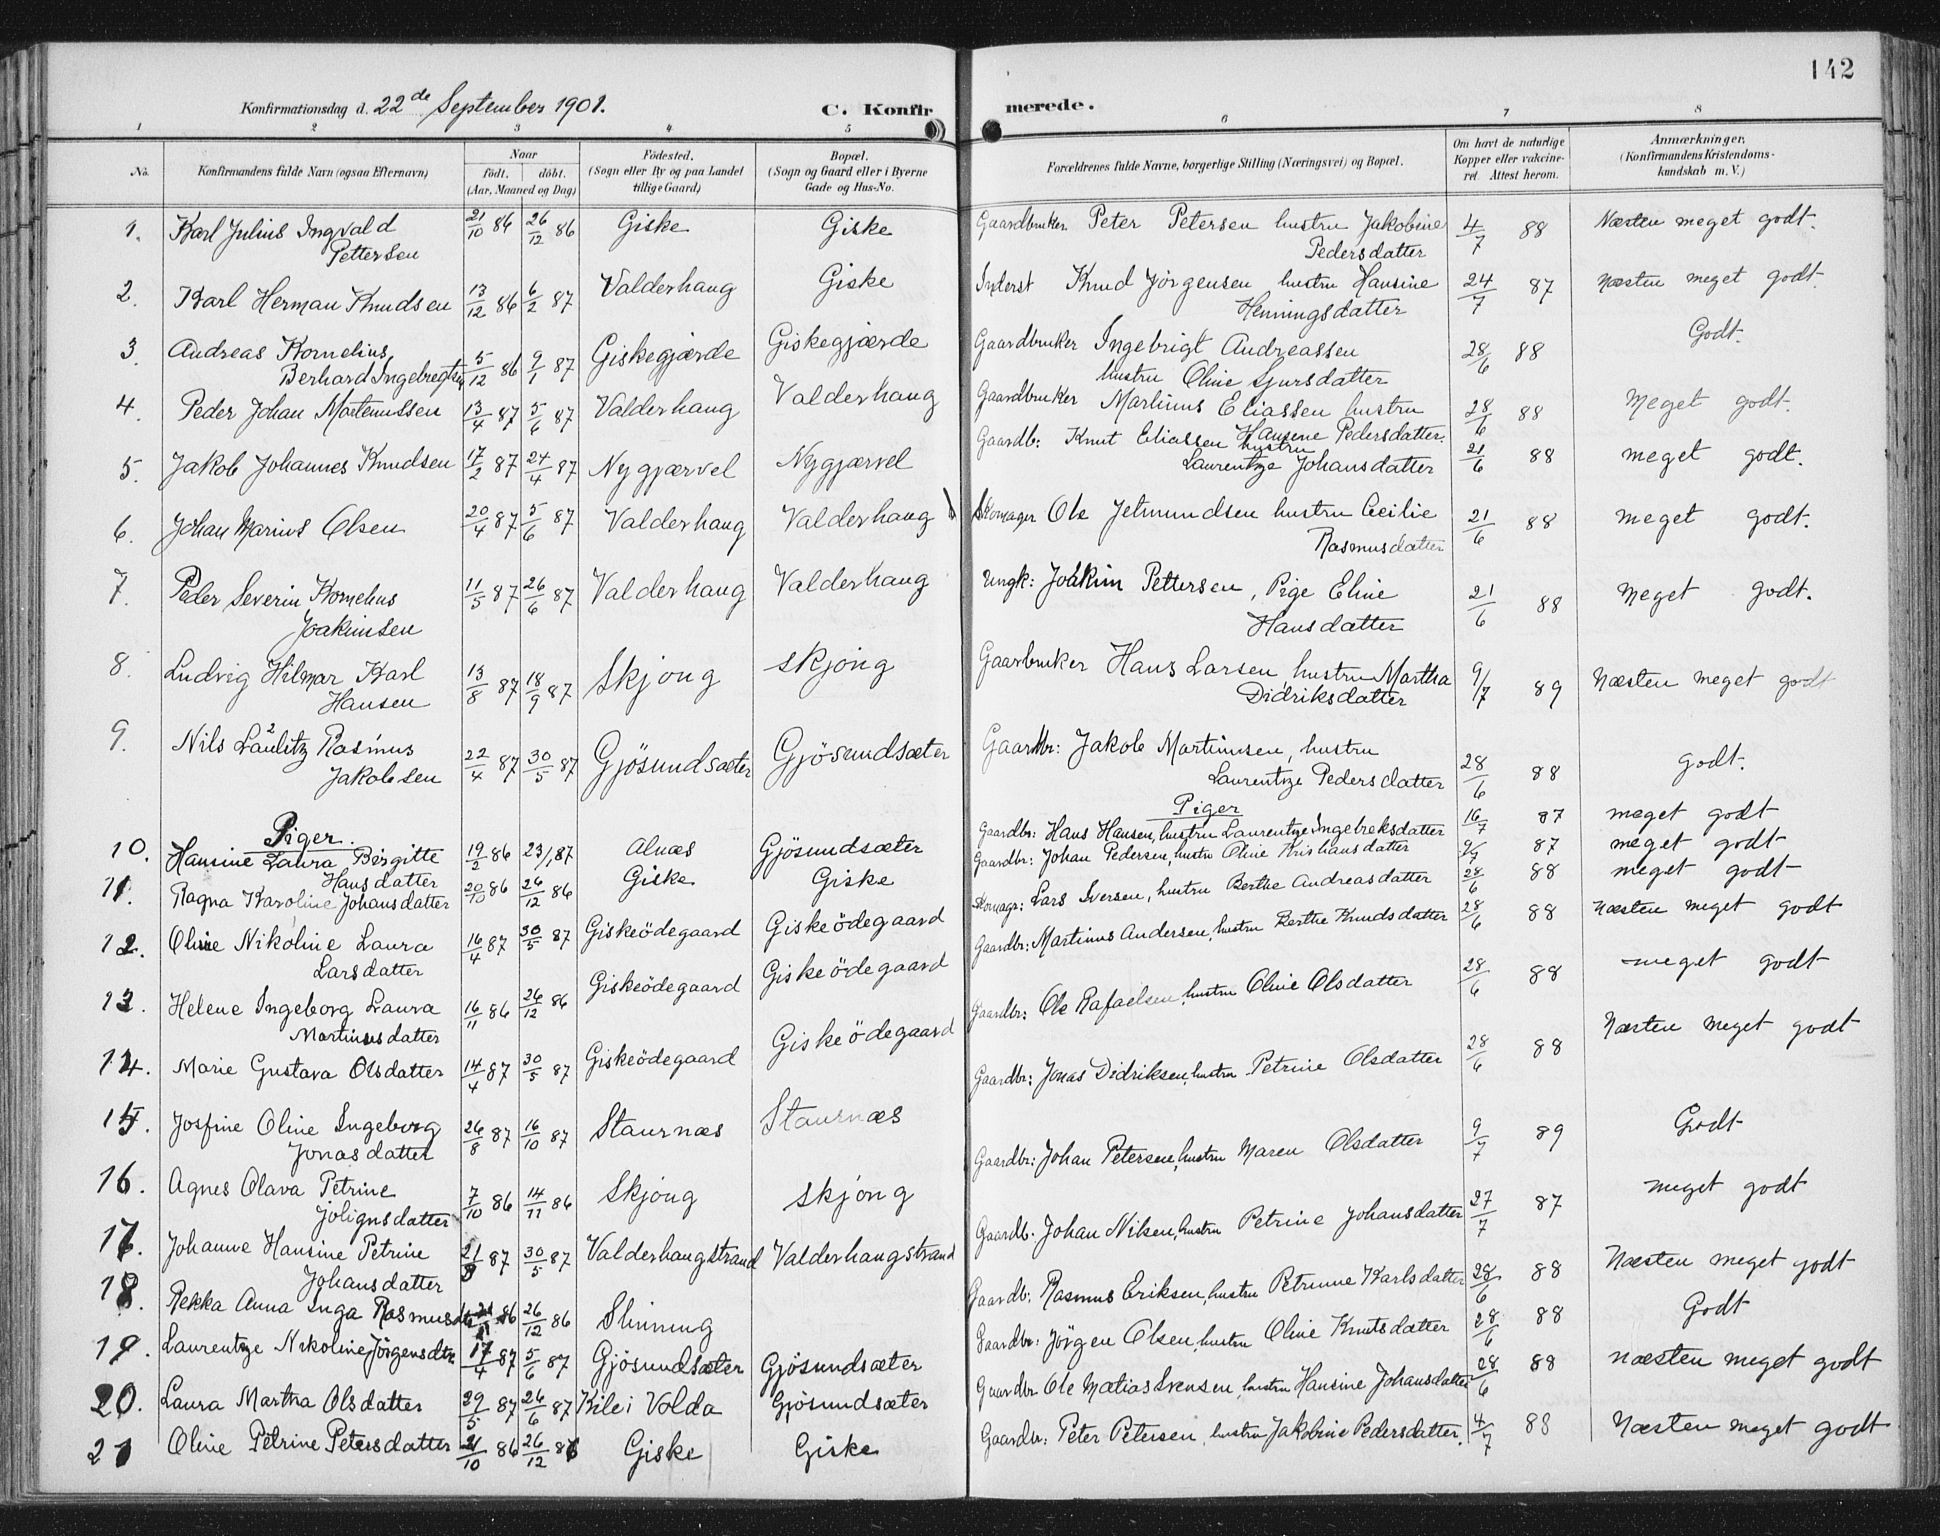 142
Konfirmationsdag d. 22de September 1901. C. Konfirmerede.
1 2 3 4 5 6 7 8
No. Konfirmandens fulde Navn (ogsaa Efternavn) Naar født. døbt. (Aar, Maaned og Dag) Fødested. (Sogn eller By og paa Landet tillige Gaard) Bopæl. (Sogn og Gaard eller i Byerne Gade og Hus-No. Forældrenes fulde Navne, borgerlige Stilling (Næringsvei) og Bopæl. Om havt de naturlige Kopper eller vakcineret. Attest herom. Anmærkninger, (Konfirmandens Kristendomskundskab m. V.)
1. Karl Julius Ingvald Pettersen 21/10 86 26/12 86 Giske Giske Gaardbruker Peter Petersen hustru Jakobine Pedersdatter 4/7 88 Næsten meget godt.
2. Karl Herman Knudsen 13/12 86 6/2 87 Valderhaug Giske Inderst Knud Jørgensen hustru Hansine Henningsdatter 24/7 87 Næsten meget godt.
3. Andreas Kornelius Berhard Ingebregtsen 5/12 86 9/1 87 Giskegjærde Giskegjærde Gaardbruker Ingebrigt Andreassen hustru Oline Sjursdatter 28/6 88 Godt.
4. Peder Johan Martinussen 13/4 87 5/6 87 Valderhaug Valderhaug Gaardbruker Martinus Eliassen hustru Hansene Pedersdatter. 28/6 88 Meget godt.
5. Jakob Johannes Knudsen 17/2 87 24/4 87 Nygjærvel Nygjærvel Gaardb: Knut Eliassen hustru Laurentze Johansdatter 21/6 88 meget godt.
6. Johan Marius Olsen 20/4 87 5/6 87 Valderhaug Valderhaug Skomager Ole Jetmundsen hustru Cecilie Rasmusdatter 21/6 88 meget godt.
7. Peder Severin Kornelius Joakimsen 11/5 87 26/6 87 Valderhaug Valderhaug Ungk: Joakim Pettersen, Pige Eline Hansdatter 21/6 88 Meget godt.
8. Ludvig Hilmar Karl Hansen 13/8 87 18/9 87 Skjong Skjong Gaarbruker Hans Larsen, hustru Martha Didriksdatter 9/7 89 Næsten meget godt
9. Nils Laulitz Rasmus Jakobsen 22/4 87 30/5 87 Gjösundsæter Gjösundsæter Gaardbr: Jakob Martinusen, hustru Laurentze Pedersdatter 28/6 88 godt.
Piger. Piger
10. Hansine Laura Birgitte Hansdatter 19/2 86 23/1 87 Alnæs Gjösundsæter Gaardbr: Hans Hansen, hustru Laurentze Ingebreksdatter 16/7 87 meget godt
11. Ragna Karoline Johansdatter 20/10 86 26/12 86 Giske Giske Gaardbr: Johan Pedersen, hustr Oline Kristiansdatter 9/7 87 meget godt
12. Oline Nikoline Laura Larsdatter 16/4 87 30/5 87 Giskeödegaard Giskeödegaard Skomagr: Lars Iversen, hustru Berthe Andreasdatter 28/6 88 meget godt
13. Helene Ingeborg Laura Martinusdatter 16/11 86 26/12 86 Giskeödegaard Giskeödegaard Gaardbr: Martinus Andersen, hustru Berthe Knudsdatter 28/6 88 Næsten meget godt
14. Marie Gustava Olsdatter 14/4 87 30/5 87 Giskeödegaard Giskeödegaard Gaardbr: Ole Rafaelsen, hustru Oline Olsdatter 28/6 88 meget godt
15. Josfine Oline Ingeborg Jonasdatter 26/8 87 16/10 87 Staurnæs Staurnæs Gaardbr: Jonas Didriksen, hustru Petrine Olsdatter 28/6 88 Næsten meget godt
16. Agnes Olava Petrine 7/10 86 14/11 86 Skjong Skjong Gaardbr: Johan Petersen, hustru Maren Olsdatter 9/7 89 Godt
17. Johanne Hansine Petrine Johansdatter 21/3 87 30/5 87 Valderhaugstrand Valderhaugstrand Gaardb. Johan Nilsen, hustru Petrine Johansdatter 27/7 87 meget godt
18. Rekka Anna Inga 86 26/12 86 Slinning Gaardb: Rasmus Eriksen, hustru Petrinne Karlsdatter 28/6 88 Næsten meget godt
19. Laurentze Nikoline Jörgensdtr 17/4 87 5/6 87 Gjösundsæter Gjösundsæter Gaardbr: Jörgen Olsen, hustru Oline Knutsdatter 28/6 88 Godt
20. Laura Martha Olsdatter 29/5 87 26/6 87 Kile i Volda Gjösundsæter Gaardbr Ole Matias Svensen, hustru Hansine Johansdatter 28/6 88 næsten meget godt
21 Oline Petrine Petersdatter 21/10 86 26/12 86 Giske Giske Gaardbr: Peter Petersen, hustru Jakobine Pedersdatter. 4/7 88 Næsten meget godt